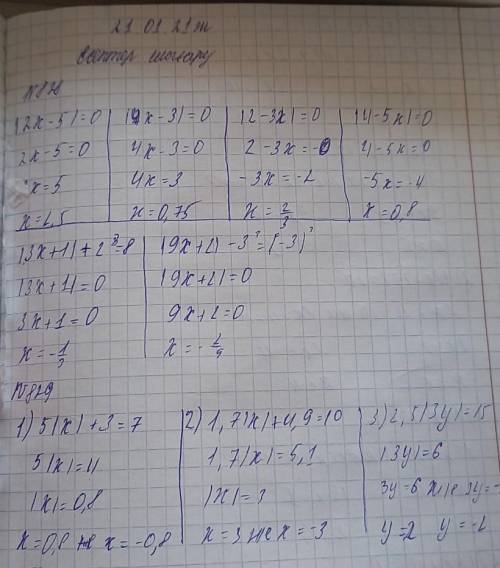 21 01 21ж
Есептер шығару
№828
|2x-5|=0 |4x-3|=0 |2-3x|=0 |4-5x|=0
2x-5=0 4x-3=0 2-3x=0 4-5x=0
x=5 4x=3 -3x=-2 -5x=-4
x=2,5 x=0,75 x=2/3 x=0,8
|3x+1|+2³=8 |9x+2|-3³=(-3)³
|3x+1|=0 |9x+2|=0
3x+1=0 9x+2=0
x=-1/3 x=-2/9
№829
1) 5|x|+3=7 2) 1,7|x|+4,9=10 3) 2,5|3y|=15
5|x|=4 1,7|x|=5,1 |3y|=6
|x|=0,8 |x|=3 3y=6 же 3y=-
x=0,8 же x=-0,8 x=3 же x=-3 y=2 y=-2